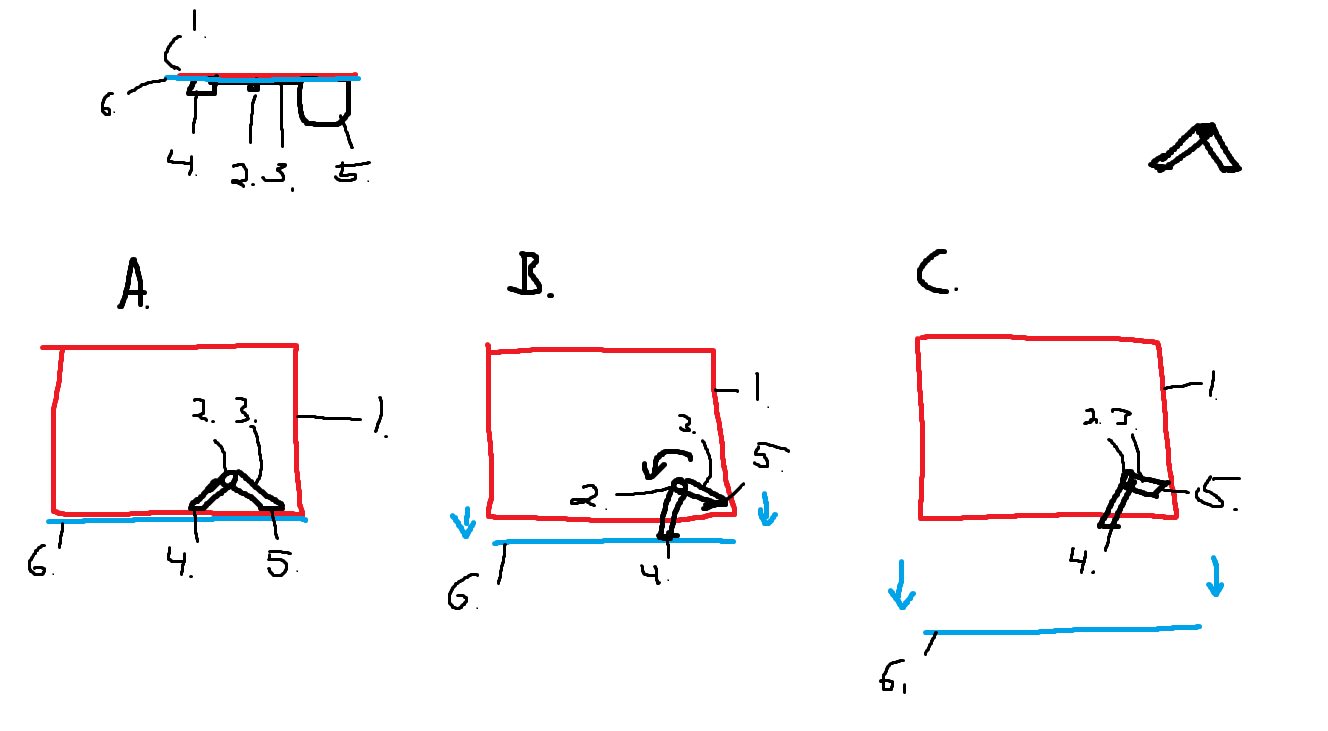 1.
6.
4. 2. 3. 5.
A. B. C.
2. 3. 1.
6. 4. 5.
1.
3.
5.
2.
4.
6.
1.
2. 3.
5.
4.
6.